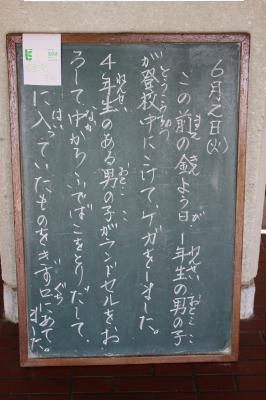 ６月２日(火)
この前の鏡よう日、一年生の男の子
が登校中にこけて、ケガをしました。
４年生のある男の子がランドセルをお
ろして、中からふでばこをとりだして、
に入っていたものをきず口にあて
ました。